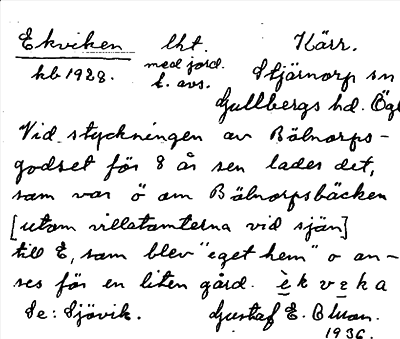 Ekviken lht. Kärr.
kb 1928. med jord. Stjärnorp sn
t. avs. Gullbergs hd. Ögl
Vid styckningen av Bälnorps-
godset för 8 år sen lades det,
som var ö om Bälnorpsbäcken
[utom villatomterna vid sjön]
till E, som blev "eget hem" o an-
ses för en liten gård. è k v e k a
Se: Sjövik. Gustaf E.
1936.